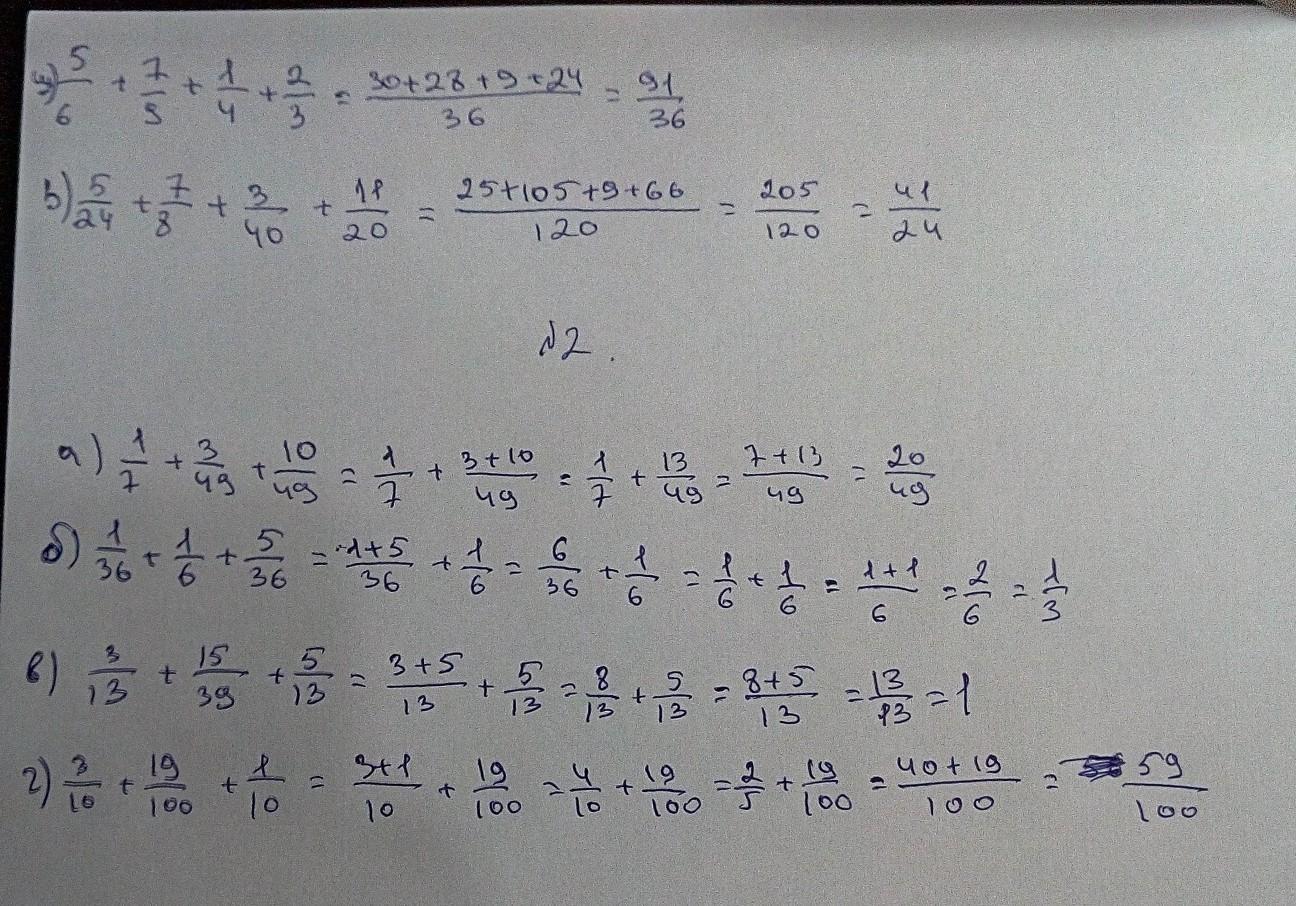 5/6 + 7/9 + 1/4 + 2/3 = (30+28+9+24)/36 = 91/36
з) 5/24 + 7/8 + 3/40 + 11/20 = (25+105+9+66)/120 = 205/120 = 41/24
№2.
а) 1/7 + 3/49 + 10/49 = 1/7 + (3+10)/49 = 1/7 + 13/49 = (7+13)/49 = 20/49
б) 1/36 + 1/6 + 5/36 = (1+5)/36 + 1/6 = 6/36 + 1/6 = 1/6 + 1/6 = (1+1)/6 = 2/6 = 1/3
в) 3/13 + 15/39 + 5/13 = (3+5)/13 + 5/13 = 8/13 + 5/13 = (8+5)/13 = 13/13 = 1
г) 3/10 + 19/100 + 1/10 = (3+1)/10 + 19/100 = 4/10 + 19/100 = 2/5 + 19/100 = (40+19)/100 = 59/100